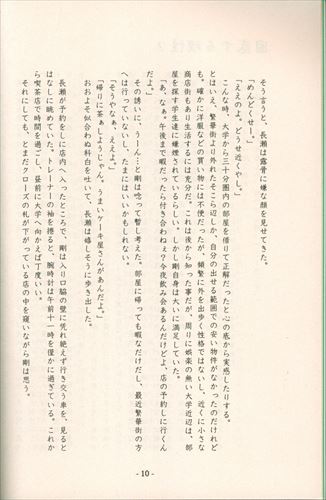 そう言うと、長瀬は露骨に嫌な顔を見せてきた。
「めんどくせー。」
「ええのよ、近くやし。」
こんな時、大学から三十分圏内の部屋を借りて正解だったと心の底から実感したりする。
とはいえ、繁華街より外れたそこら辺しか、自分の出せる範囲での安い物件がなかったのだけれど
も。確かに洋服などの買い物には不便だったが、頻繁に外を出歩く性格ではないし、近くに小さな
商店街もあり生活するには充分だ。これは後から知った事だが、周りに娯楽の無い大学近辺は、部
屋を探す学生達に嫌煙されているらしい。しかし剛自身は大いに満足していた。
「あ、なぁ。午後まで暇だったら付き合わねぇ?今夜飲み会あるんだけどよ、店の予約しに行くん
だよ。」
その誘いに、うーん…と剛は唸って暫し考えた。部屋に帰っても暇なだけだし、最近繁華街の方
へは行っていないし、たまにはいいかもしれない。
「そうやなぁ、ええよ。」
「帰りに茶ぁしようじゃん。うまいケーキ屋さんがあんだよ。」
おおよそ似合わぬ科白を吐いて、長瀬は嬉しそうに歩き出した。
長瀬が予約をしに店内へ入ったところで、剛は入り口脇の壁に凭れ絶えず行き交う車を、見ると
はなしに眺めていた。トレーナーの袖を捲ると、腕時計は午前十一時を僅かに過ぎている。これか
ら喫茶店で時間を過ごし、昼前に大学へ向かえば丁度いい。
それにしても、とまだクローズの札が下がっている店の中を窺いながら剛は思う。
- 10 -